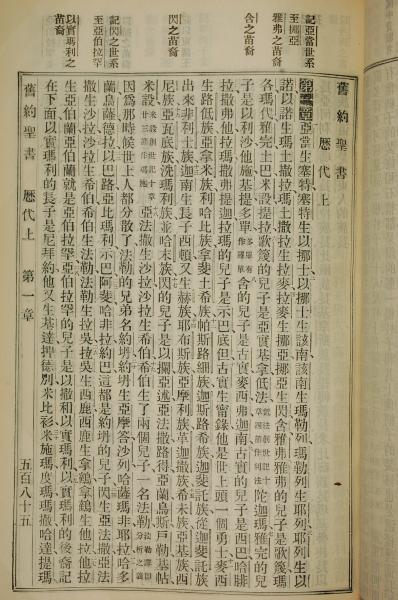 記亞當世系
至挪亞
雅弗之苗裔
含之苗裔
閃之苗裔
記閃之世系
至亞伯拉罕
以實瑪利之
苗裔
舊約聖書
歷代上
第一章亞當生塞特塞特生以挪士以挪士生該南該南生瑪勒列瑪勒列生耶列耶列生以
諾以諾生瑪土撒拉瑪土撒拉生拉麥拉麥生挪亞挪亞生閃含雅弗雅弗的兒子是歌篾瑪
各瑪代雅完土巴米設提拉歌篾的兒子是亞實基拿低法低法創世記十章四節作利法陀迦瑪雅完的兒
子是以利沙他施基提多單多單有作羅單含的兒子是古實麥西弗迦南古實的兒子是西巴哈腓
拉撒弗他拉瑪撒弗提迦拉瑪的兒子是示巴底但古實生甯錄他是世上頭一個勇士麥西
生路低族亞拿米族利哈比族拿斐土希族帕斯路細族迦斯路希族迦斐託族從迦斐託族
出來非利士族迦南生長子西頓又生赫族耶布斯族亞摩利族革迦撒族希未族亞基族西
尼族亞瓦底族洗瑪利族並哈末族閃的兒子是以攔亞述亞法撒路得亞蘭烏斯戶勒基帖
米設米設創世記十章廿三節作瑪施亞法撒生沙拉沙拉生希伯希伯生了兩個兒子一名法勒法勒譯即分析之義
因爲那時候世上人都分散了法勒的兄弟名約坍約坍生亞摩答沙列哈薩瑪非耶拉哈多
蘭烏薩德拉以巴路亞比瑪利示巴阿斐哈非拉約巴這都是約坍的兒子閃生亞法撒亞法
撒生沙拉沙拉生希伯希伯生法勒法勒生拉吳拉吳生西鹿西鹿生拿鶴拿鶴生他拉他拉
生亞伯蘭亞伯蘭就是亞伯拉罕亞伯拉罕的兒子是以撒和以實瑪利以實瑪利的後裔記
在下面以實瑪利的長子是尼拜約他又生基達押德別米比衫米施瑪度瑪瑪撒哈達提瑪
舊約聖書 歷代上 第一章 五百八十五